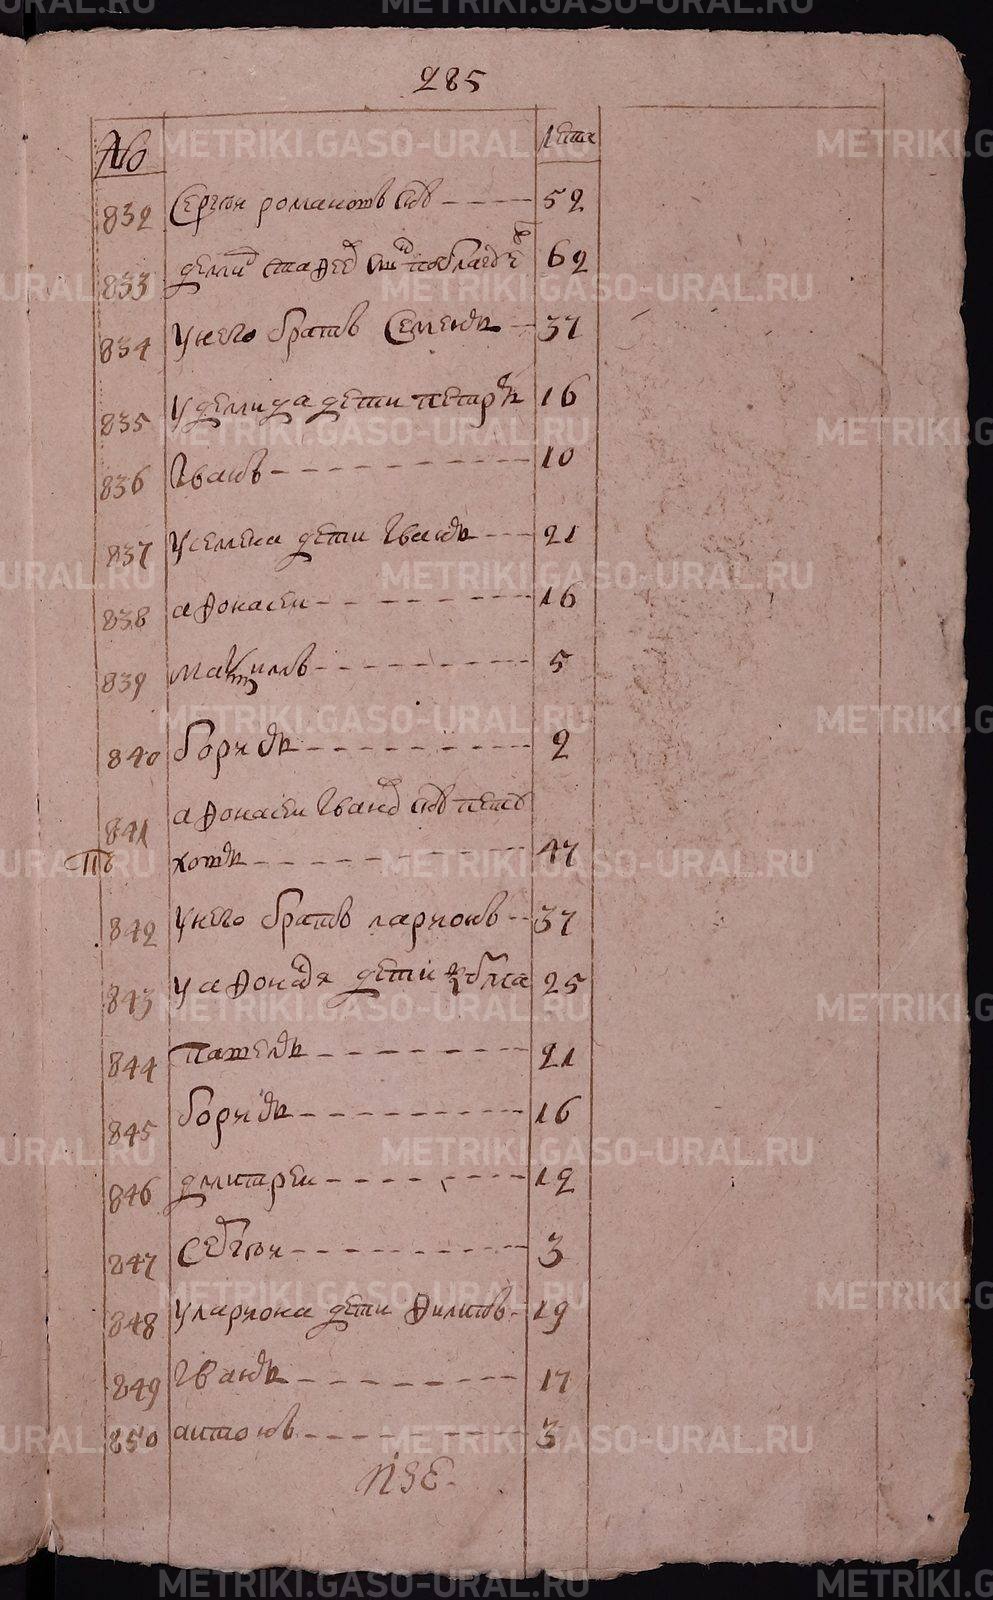 285
№ лета
832 Сергѣи романовъ снъ 52
833 демид 62
834 у него братъ Семенъ 37
835 у демида дети петръ 16
836 Иванъ 10
837 у семена дети Иванъ 21
838 афонасеи 16
839 5
840 борисъ 2
841 афонасеи Иванов снъ
47
842 у него братъ ларионъ 37
843 у афонася дети 25
844 павелъ 21
845 борисъ 16
846 дмитреи 12
847 Сергѣи 3
848 у лариона дети филипъ 19
849 Иванъ 17
850 антонъ 3
METRIKI.GASO-URAL.RU